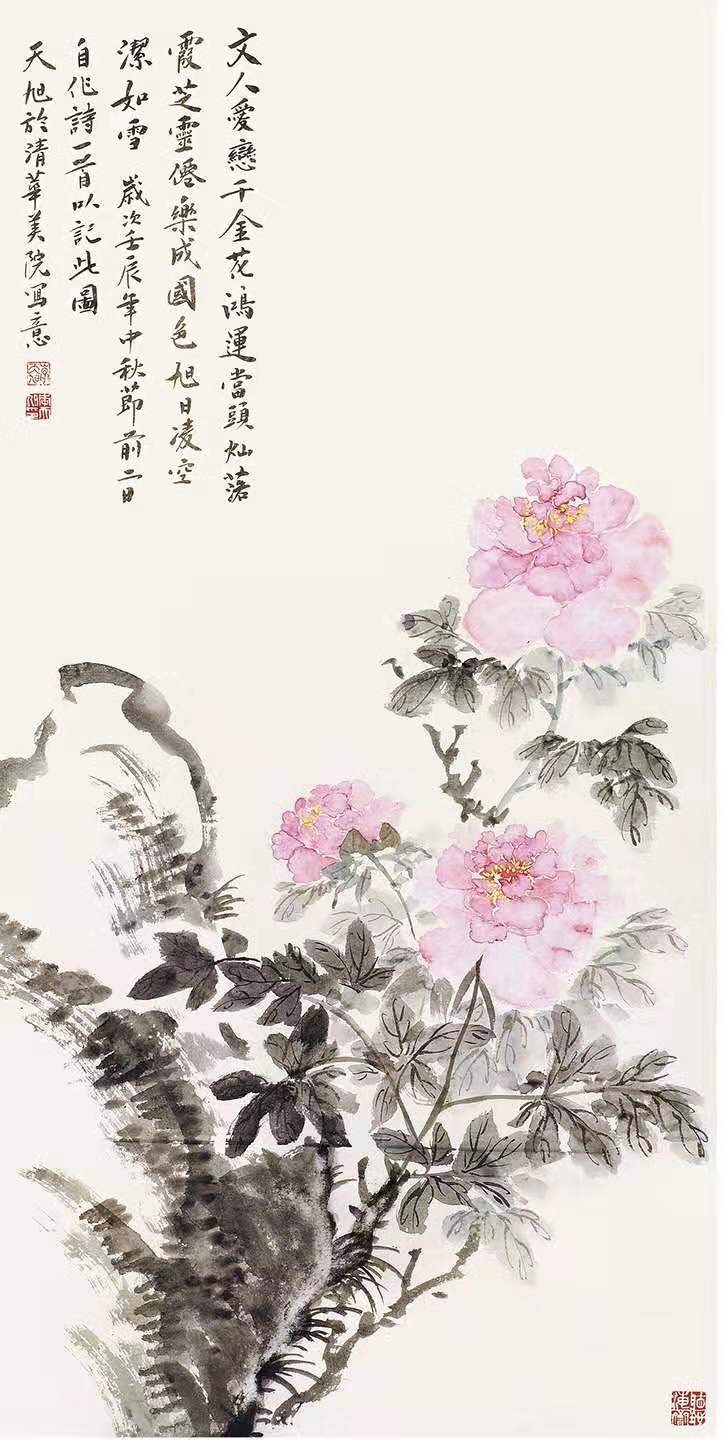 文人愛戀千金花鴻運當頭灿落
霞芝靈僊樂成國色旭日凌空
潔如雪 歲次壬辰年中秋節前二日
自作詩一首以記此圖
天旭於清華美院寫意